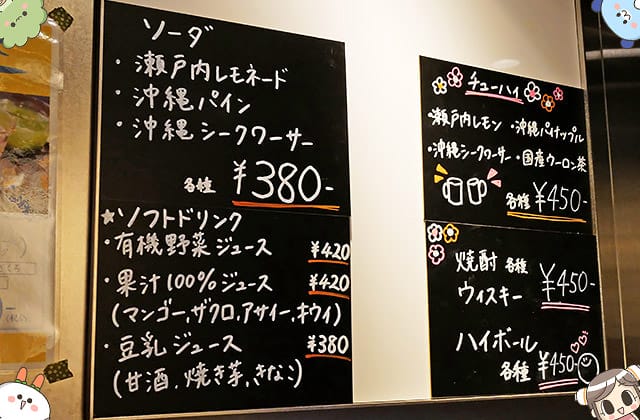 ソーダ
・瀬戸内レモネード
・沖縄パイン
・沖縄シークワーサー
各種 ¥380-
★ソフトドリンク
・有機野菜ジュース ¥420
・果汁100%ジュース ¥420
(マンゴー,ザクロ,アサイー,キウイ)
・豆乳ジュース ¥380
(甘酒,焼き芋,きなこ)
チューハイ
・瀬戸内レモン ・沖縄パイナップル
・沖縄シークワーサー ・国産ウーロン茶
各種 ¥450-
焼酎 各種
ウィスキー ¥450-
ハイボール
各種 ¥450-